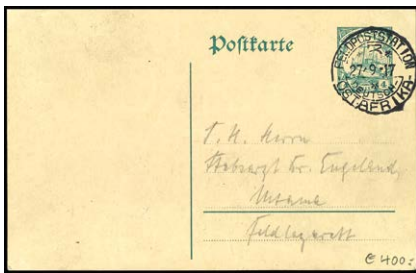 Postkarte
FELDPOSTSTATION
27.9.17
DEUTSCH-
OSTAFRIKA
4
Herrn
Stabsarzt Dr. Engeland,
Feldlazarett
€ 400.-